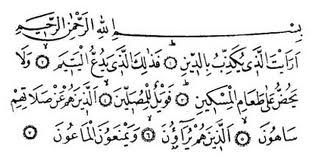 بِسْمِ اللهِ الرَّحْمٰنِ الرَّحِيمِ
اَرَاَيْتَ الَّذِي يُكَذِّبُ بِالدِّينِ ۝ فَذٰلِكَ الَّذِي يَدُعُّ الْيَتِيمَ ۝ وَلَا
يَحُضُّ عَلٰى طَعَامِ الْمِسْكِينِ ۝ فَوَيْلٌ لِلْمُصَلِّينَ ۝ اَلَّذِينَ هُمْ عَنْ صَلَاتِهِمْ
سَاهُونَ ۝ اَلَّذِينَ هُمْ يُرَاؤُنَ ۝ وَيَمْنَعُونَ الْمَاعُونَ ۝